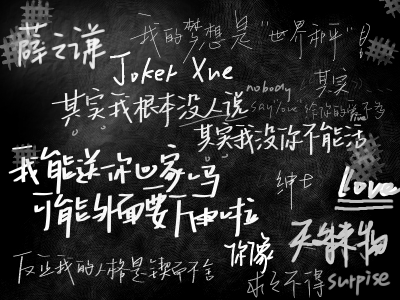 薛之谦
我的梦想是"世界和平"
Joker Xue
nobody
其实
其实我根本没人说
say love
给你的爱不
其实我没你不能活
我能送你回家吗
绅士
love
可能外面要下雨啦
你像
天外来物
反正我的人格是锲而不舍
求之不得
surprise